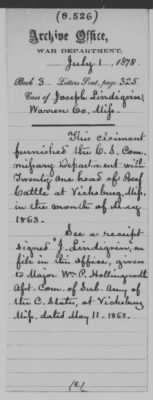 (8.526)
Archive Office,
WAR DEPARTMENT,
July 1, 1878.
Book 3 Letters Sent, page 325
Case of Joseph Lindigrin,
Warren Co. Miss.
This claimant
furnished the C. S. Com-
missary Department with
Twenty one head of Beef
Cattle at Vicksburg, Miss,
in the month of
1863.
See a receipt
signed "J. Lindigrin", on
file in this Office, given
to Major Wm. P. Hollingswell
Asst. Com. of Sub. Army of
the C. States, at Vicksburg
Miss, dated May 11. 1863.